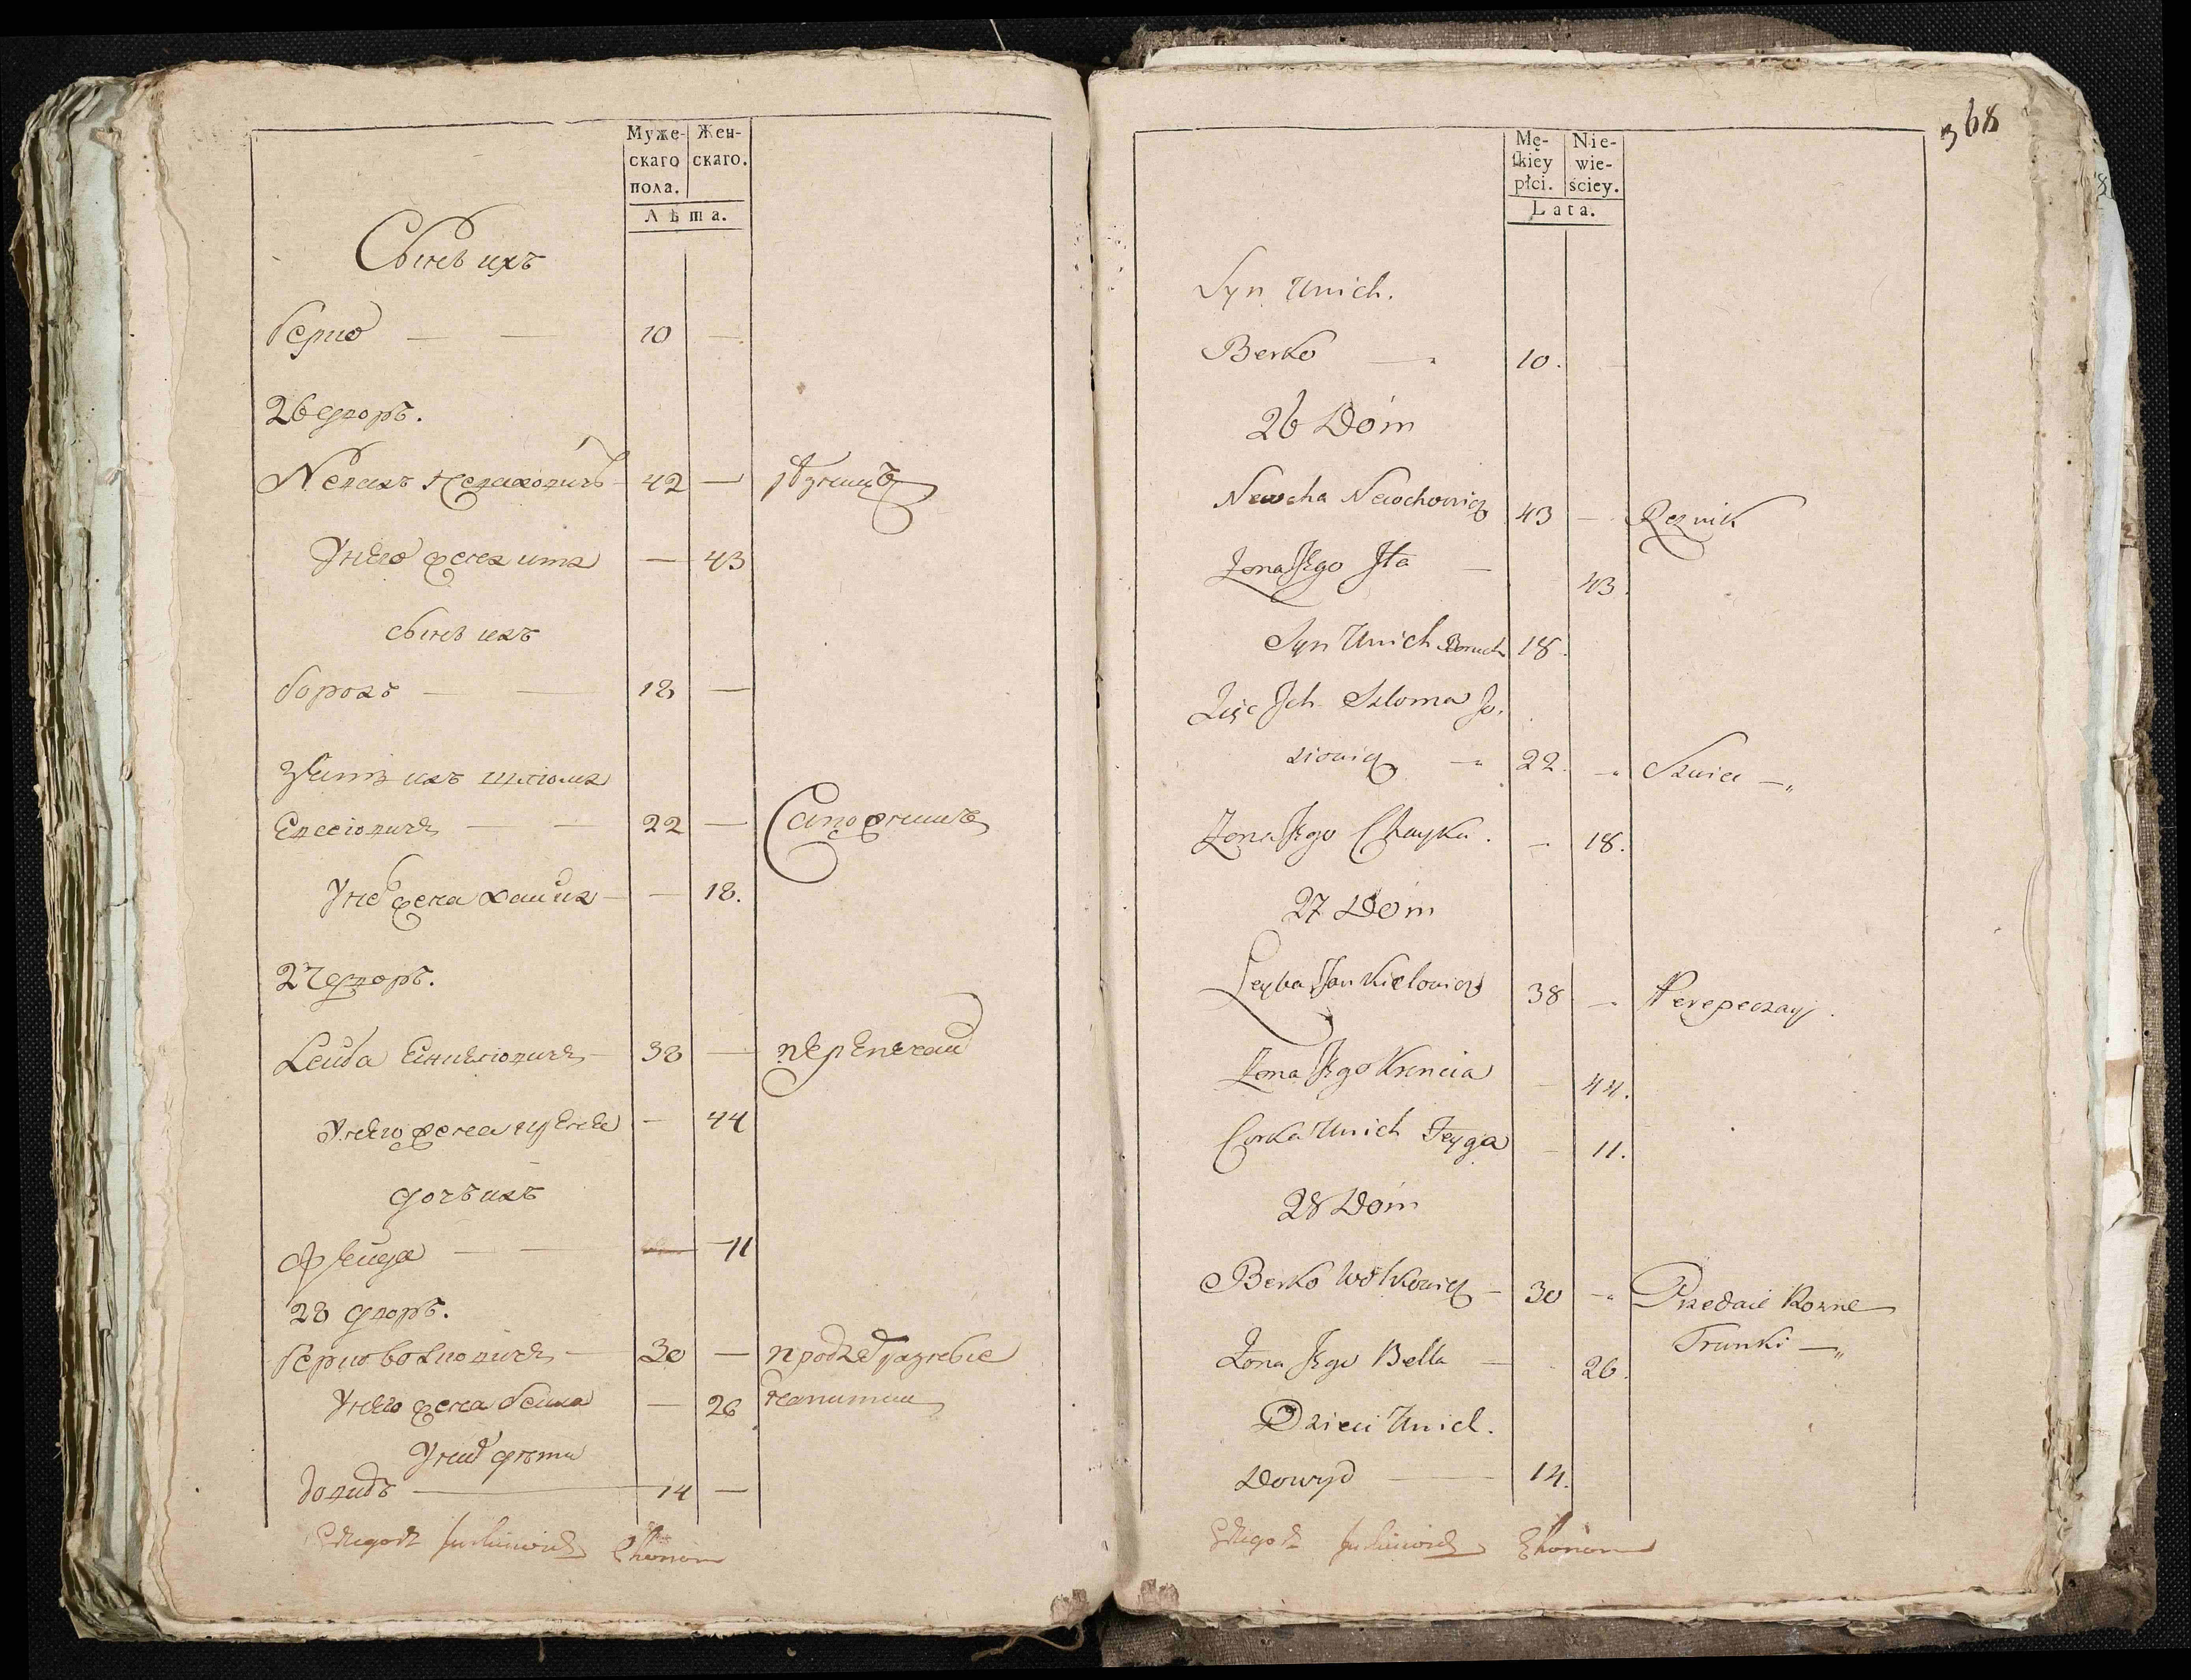 Муже-
скаго
пола.
Жен-
скаго.
Лѣта.
Сынъ ихъ
Берко — — 10 —
26 дворъ.
Невахъ Невахович 42 —
У него жена ита — 43
сынъ ихъ
борохъ — — 18 —
Зять ихъ шлиома
22 — Сапожникъ
У него жена хаика — — 18.
27 дворъ.
Леиба — 38 — перепечаи
У него жена — 44
дочъ ихъ
Фейга — — 11
28 дворъ.
Берко волковичъ — 30 — продаетъ разные
У него жена бейла — 26 напитки
У них дѣти
довидъ — 14 —
Ekonom
368
Mę-
skiey
płci.
Nie-
wie-
ściey.
Lata.
Syn Unich.
Berko — 10.
26 Dóm
Newcha Newchowicz 43 — Reznik
Żona Jego Ita — 43.
Syn Unich Boruch 18.
Zięć Ich Szloma Jo-
siowicz — 22. — Szwiec —
Żona Jego Chayka. — 18.
27 Dóm
Leyba Jankielowicz 38 — Perepeczay.
Żona Jego Krencia — 44.
Corka Unich Feyga — 11.
28 Dóm
Berko Wolkowicz — 30 — Przedaie Rozne
Trunki —
Żona Jego Bella — 26.
Dzieci Unich.
Dowyd — 14.
Ekonom